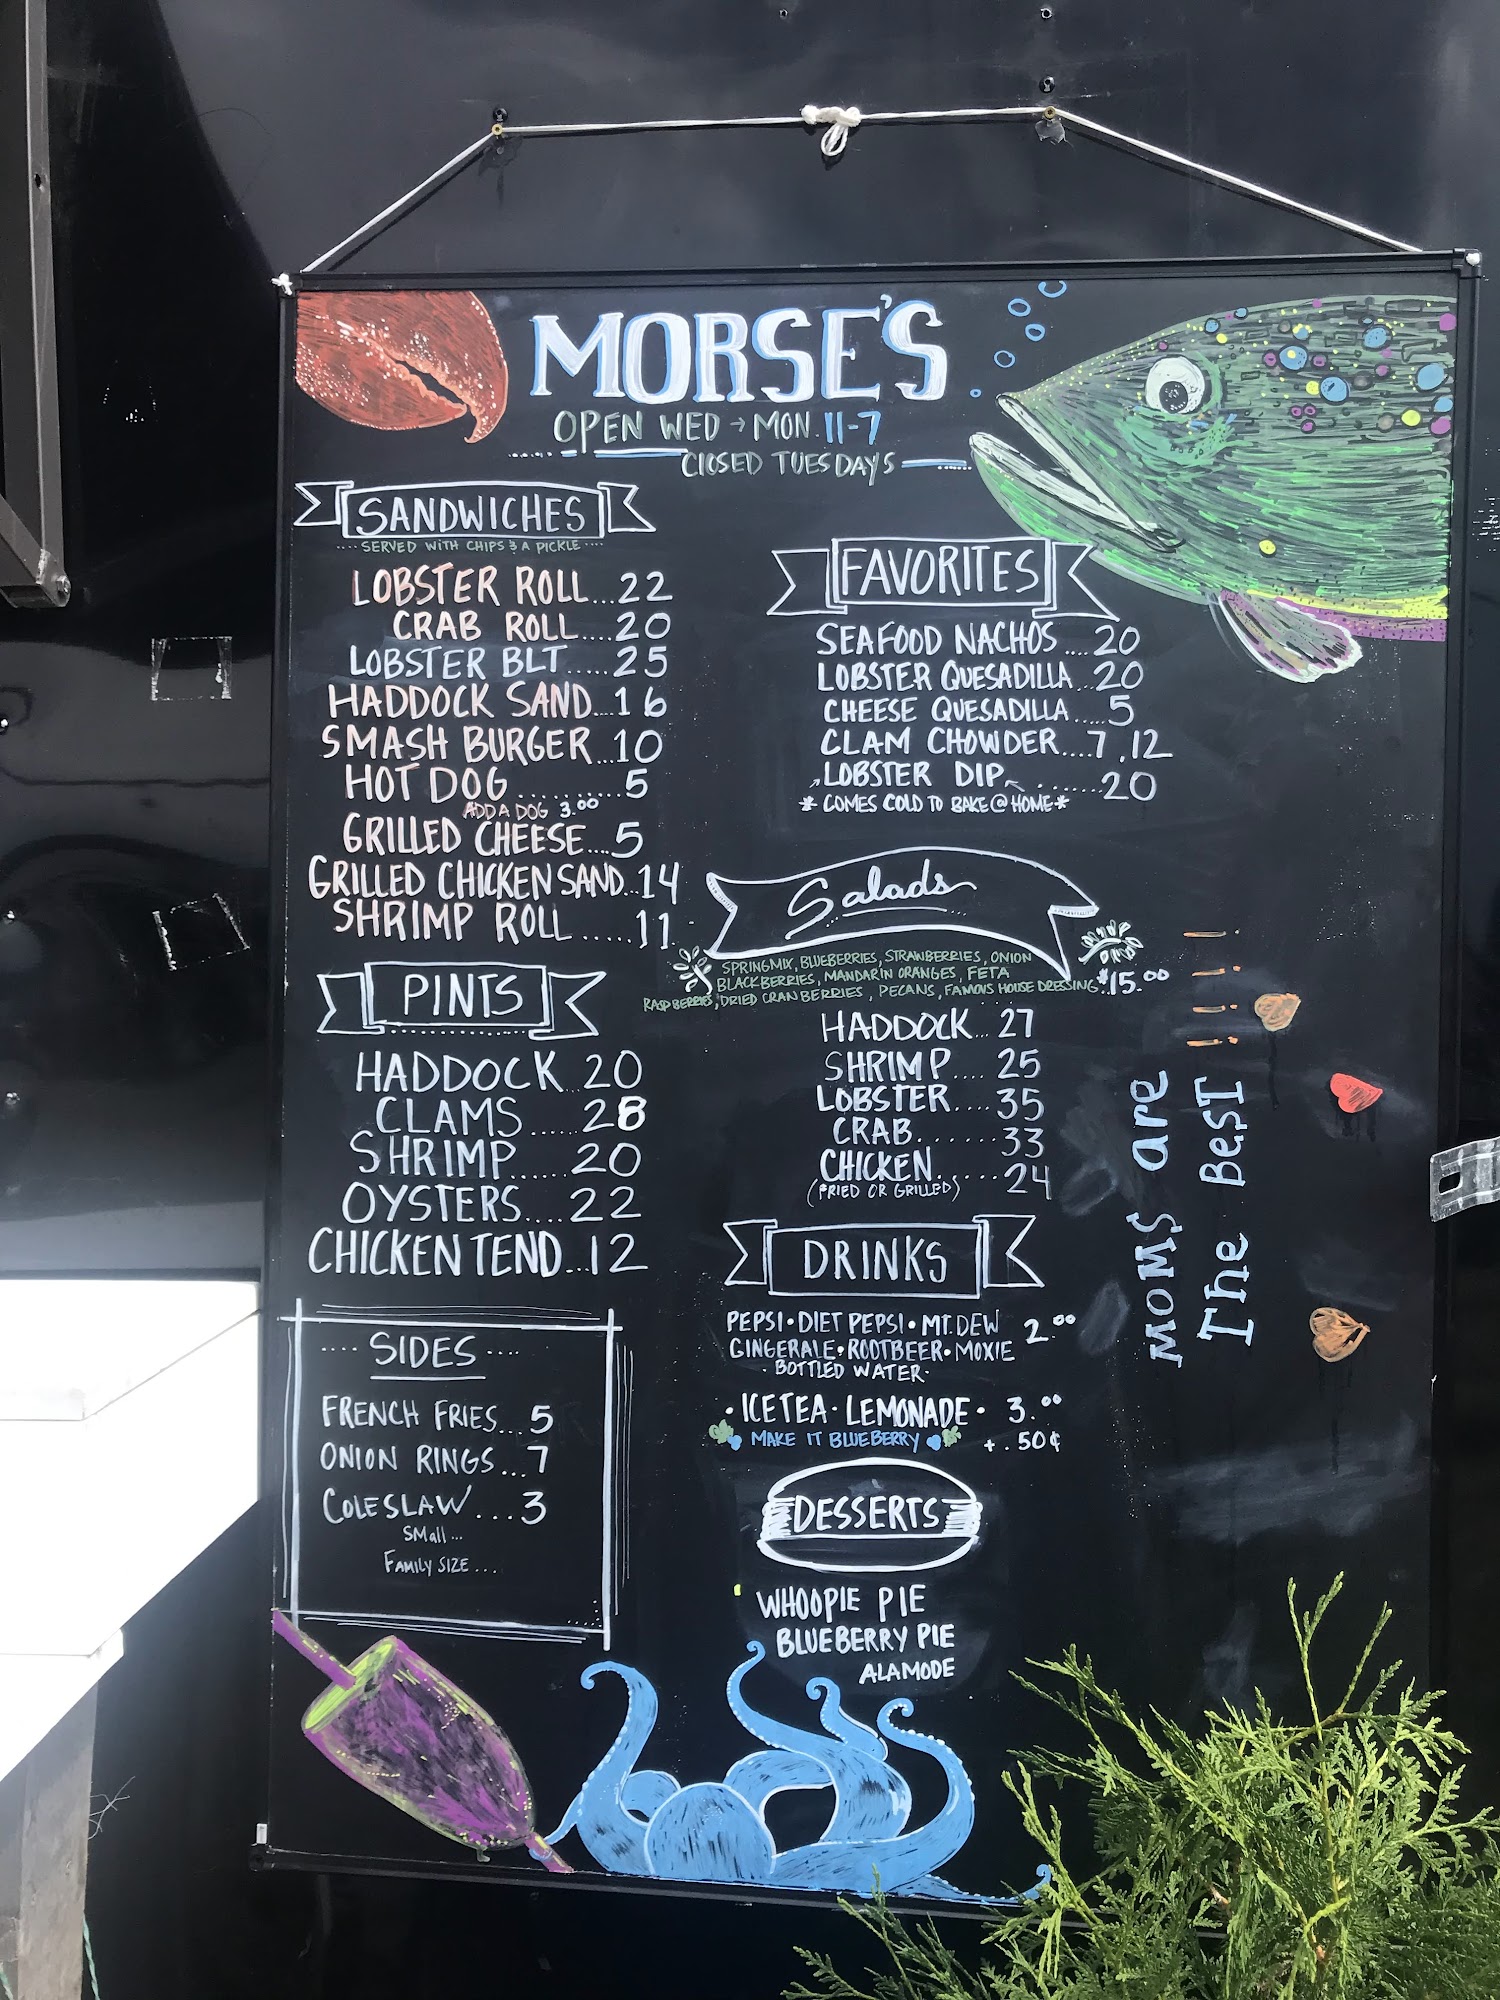 MORSE'S
OPEN WED → MON. 11-7
CLOSED TUESDAYS
SANDWICHES
SERVED WITH CHIPS & A PICKLE
LOBSTER ROLL...22
CRAB ROLL....20
LOBSTER BLT.....25
HADDOCK SAND...16
SMASH BURGER...10
HOT DOG..........5
ADD A DOG 3.00
GRILLED CHEESE....5
GRILLED CHICKEN SAND...14
SHRIMP ROLL.....11
PINTS
HADDOCK...20
CLAMS.....28
SHRIMP......20
OYSTERS....22
CHICKEN TEND...12
....SIDES....
FRENCH FRIES...5
ONION RINGS...7
COLESLAW...3
SMALL...
FAMILY SIZE...
FAVORITES
SEAFOOD NACHOS....20
LOBSTER QUESADILLA...20
CHEESE QUESADILLA.....5
CLAM CHOWDER...7,12
LOBSTER DIP.......20
* COMES COLD TO BAKE @ HOME *
Salads
SPRINGMIX, BLUEBERRIES, STRAWBERRIES, ONION
BLACKBERRIES, MANDARIN ORANGES, FETA
RASPBERRIES, DRIED CRANBERRIES, PECANS, FAMOUS HOUSE DRESSING. $15.00
HADDOCK...27
SHRIMP....25
LOBSTER....35
CRAB.......33
CHICKEN.....24
(FRIED OR GRILLED)
DRINKS
PEPSI • DIET PEPSI • MT. DEW 2.00
GINGERALE • ROOTBEER • MOXIE
• BOTTLED WATER •
• ICETEA • LEMONADE • 3.00
MAKE IT BLUEBERRY + .50¢
DESSERTS
WHOOPIE PIE
BLUEBERRY PIE
ALAMODE
MOMS are
The BesT !!!!